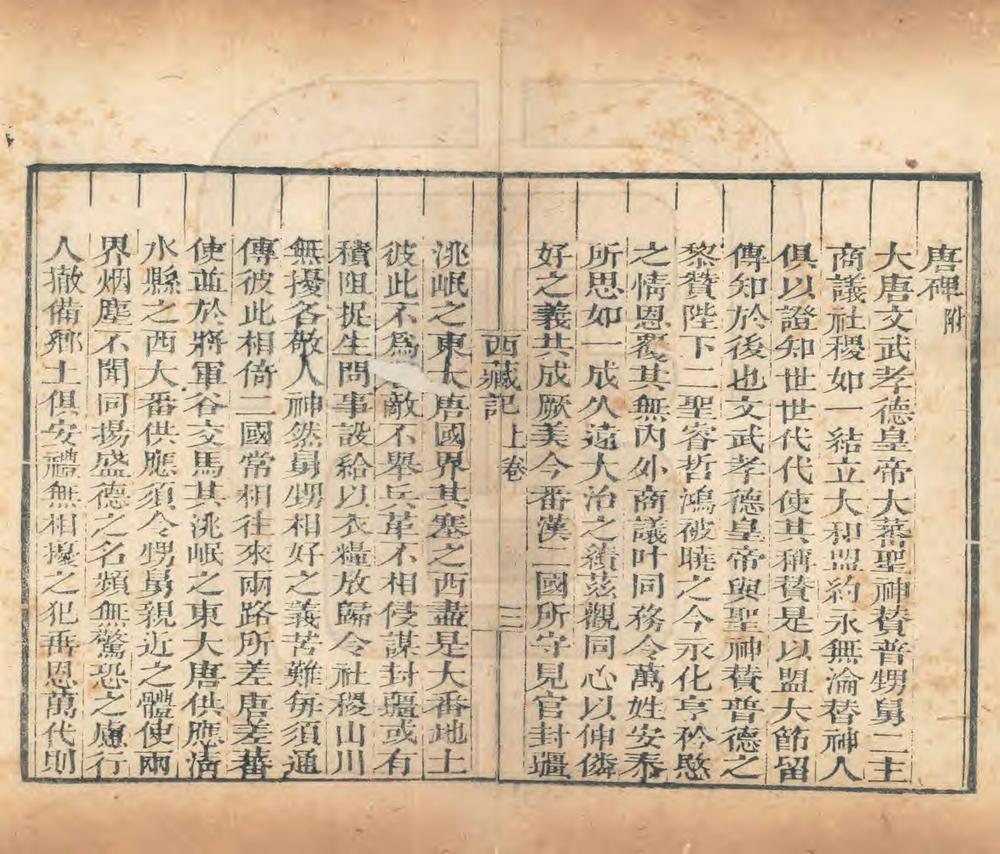 唐碑附
大唐文武孝德皇帝大蕃聖神賛普甥舅二主
商議社稷如一結立大和盟約永無淪替神人
俱以證知世世代代使其稱賛是以盟大節留
傳知於後也文武孝德皇帝與聖神賛普德之
黎賛陛下二聖睿哲鴻被曉之今永化亨矜愍
之情恩覆其無内外商議叶同務令萬姓安泰
所思如一成久遠大治之績茲觀同心以伸隣
好之義共成厥美今番漢二國所守見官封疆
西藏記 上卷 三
洮岷之東大唐國界其塞之西盡是大番地土
彼此不爲敵不舉兵革不相侵謀封疆或有
積阻捉生問事設給以衣糧放歸令社稷山川
無擾各敬人神然舅甥相好之義苦難每須通
傳彼此相倚二國常相往來兩路所差唐差蕃
使並於將軍谷交馬其洮岷之東大唐供應清
水縣之西大番供應須令甥舅親近之體使兩
界烟塵不聞同揚盛德之名頻無驚恐之慮行
人撤備鄉土俱安禮無相擾之犯垂恩萬代則